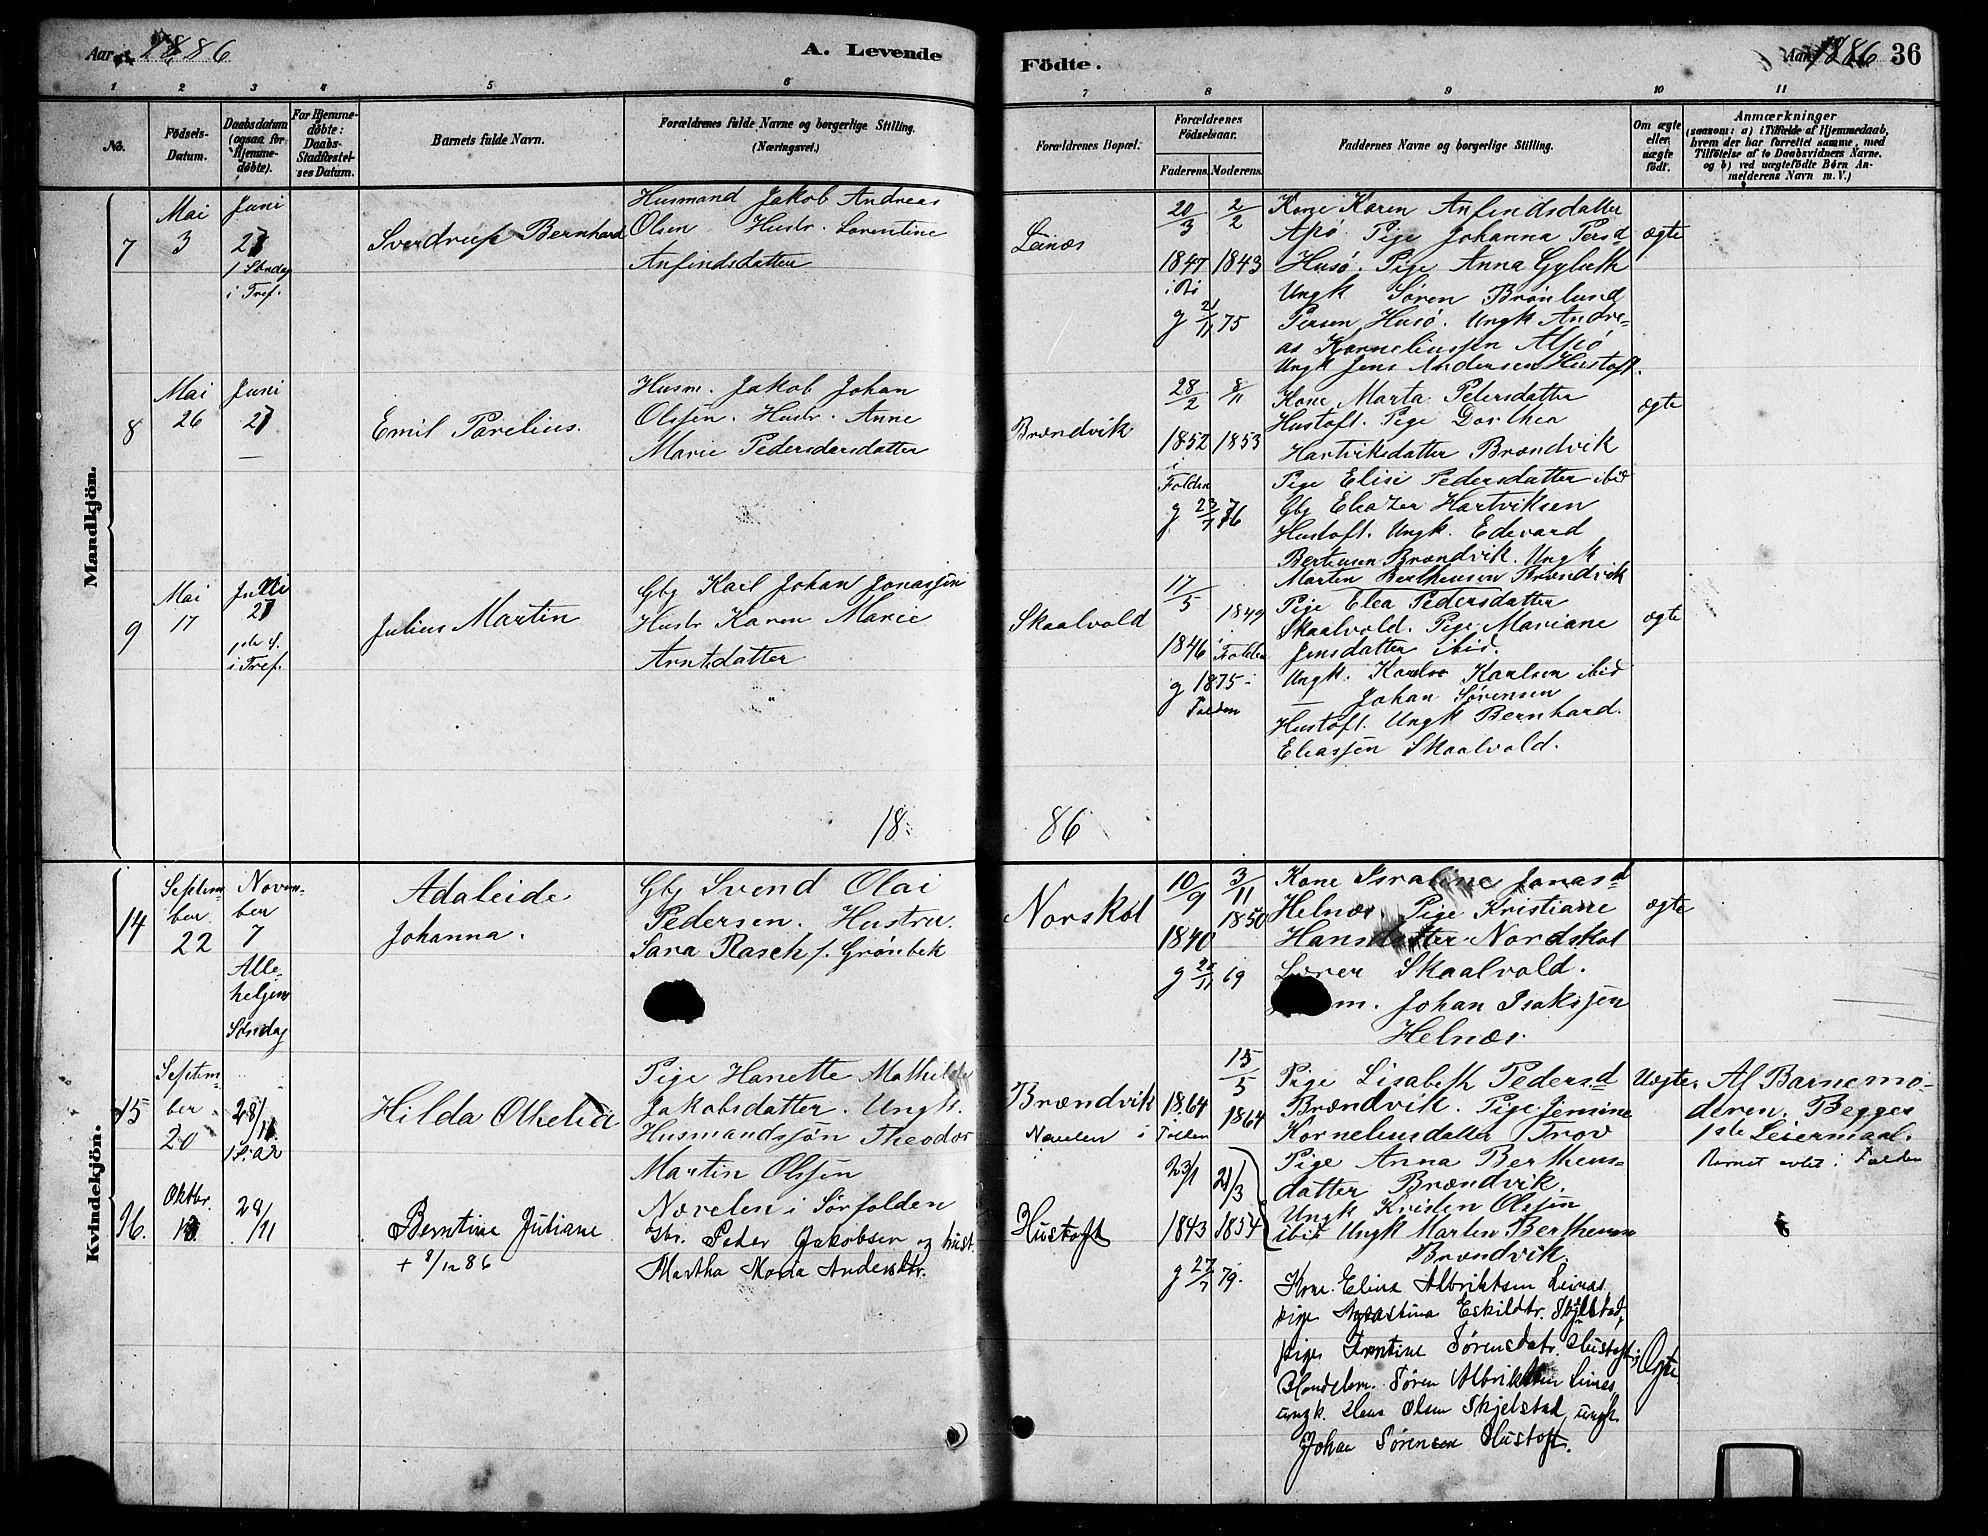 Aar 1886
A. Levende
Födte.
Aar 1886 36
1 2 3 4 5 6 7 8 9 10 11
No.
Födsels-
Datum.
Daabsdatum
(ogsaa for
Hjemme-
döbte).
For Hjemme-
döbte:
Daabs-
Stadfæstel-
ses Datum.
Barnets fulde Navn.
Forældrenes fulde Navne og borgerlige Stilling.
(Næringsvei.)
Forældrenes Bopæl.
Forældrenes
Födselsaar.
Faderens. Moderens.
Faddernes Navne og borgerlige Stilling.
Om ægte
eller
uægte
født.
Anmærkninger
(saasom: a) i Tilfælde af Hjemmedaab,
hvem der har forrettet samme, med
Tilföielse af to Daabsvidners Navne.
og b) ved uægtefödte Börn An-
melderens Navn m. V.)
Mandkjön.
7
Mai
3
Juni
27
1 Søndag
i Tref.
Sverdrup Bernhard
Husmand Jakob Andreas
Olsen Hustr. Lorentine
Anfindsdatter
Leinæs
20/3 2/2
1847 1843
i Bø
g 21/11 75
Kone Karen Anfindsdatter
Aspø. Pige Johanna Persd
Husø. Pige Anna Gylseth
Ungk Søren Brønlund
Persen Husø. Ungk Andre-
as Korneliussen Alpø
Ungk Jens Andersen Hustoft.
ægte
8
Mai
26
Juni
27
—
Emil Parelius.
Husm. Jakob Johan
Olssen. Hustr. Anne
Marie Pedersdersdatter
Brændvik
28/2 8/11
1852 1853
i
Folden
g 23/7 76
Kone Marta Petersdatter
Hustoft. Pige Dorthea
Hartviksdatter Brændvik
Pige Elise Pedersdatter ibid
Gbg Eleazer Hartviksen
Hustoft. Ungk. Edevard
Berteusen Brændvik. Ungk
Marten Bertheusen Brændvik
ægte
9
Mai
17
Juni
27
1ste S.
i Tref.
Julius Martin
Gbg Karl Johan Jonassen
Hustr Karen Marie
Arntsdatter
Skaalvold
17/5
1849
1846 i Folden
g 1875 i
Folden
Pige Elea Pedersdatter
Skaalvold. Pige Mariane
Jensdatter ibid.
Ungk. Karlsen ibid
— Johan Sørensen
Hustoft. Ungk Bernhard
Eliassen Skaalvold.
ægte
18 86
Kvindekjön.
14
Septem-
ber
22
Novem-
ber
7
Alle-
helgens
Søndag
Adaleide
Johanna.
Gbg Svend Olai
Pedersen. Hustru.
Sara Rasch f. Grønbek
Norskot
10/9 3/11
1850
1840
g 69
Kone Israline Jonasd
Helnæs. Pige Kristiane
Hansdatter Nordskot
Lærer Skaalvold.
m. Johan Isakssen
Helnæs
ægte
15
Septem-
ber
20
28/11
Hilda Othelia
Pige Hanette Mathilde
Jakobsdatter. Ungk.
Husmandssøn Theodor
Martin Olssen
Nævelen i Sørfolden
Brændvik
Nævelen i Folden
15/5
1864 1864
Pige Lisabeth Pedersd
Brændvik. Pige Jensine
Korneliusdatter Trov
Pige Anna Bertheus-
datter Brændvik.
Ungk Kristen Olssen
ibid Ungk Marten Bertheusen
Brændvik
Uægte
Af Barnemo-
deren. Begges
1ste Leiermaal.
Barnet avlet i Folden
16.
Oktbr.
13
28/11
Berntine Juliane
+ 8/12 86
Gbr. Peder Jakobsen og hust.
Martha Maria Andersdtr.
Hustoft
23/1 21/3
1843 1854
g 27/7 79.
Kone Elina Albriktsen Leinæs
pige Eskildtr. Skjelstad,
pige Berntine Sørensdatr. Hustoft;
Handelsm. Søren Albriktsen Leinæs,
ungk. Hans Olsen Skjelstad, ungk.
Johan Sørensen Hustoft.
Ægte